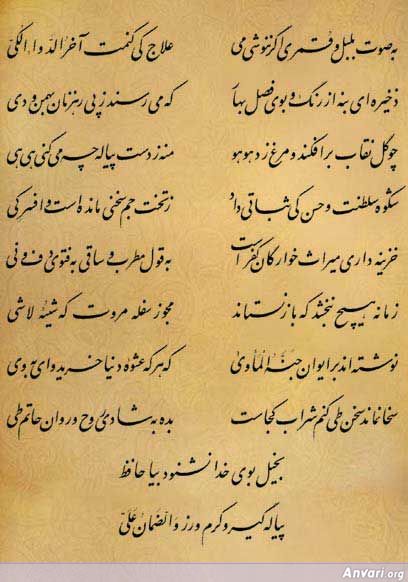 به صوت بلبل و قمری اگر ننوشی می علاج کی کنمت آخر الدواء الکی
ذخیره‌ای بنه از رنگ و بوی فصل بهار که می‌رسند ز پی رهزنان بهمن و دی
چو گل نقاب برافکند و مرغ زد هو هو منه ز دست پیاله چه می‌کنی هی هی
شکوه سلطنت و حسن کی ثباتی داد ز تخت جم سخنی مانده است و افسر کی
خزینه داری میراث خوارگان کفر است به قول مطرب و ساقی به فتوی دف و نی
زمانه هیچ نبخشد که بازنستاند مجو ز سفله مروت که شیئه لا شی
نوشته‌اند بر ایوان جنة المأوی که هر که عشوه دنیا خرید وای به وی
سخا نماند سخن طی کنم شراب کجاست بده به شادی روح و روان حاتم طی
بخیل بوی خدا نشنود بیا حافظ
پیاله گیر و کرم ورز و الضمان علیّ
Anvari.org